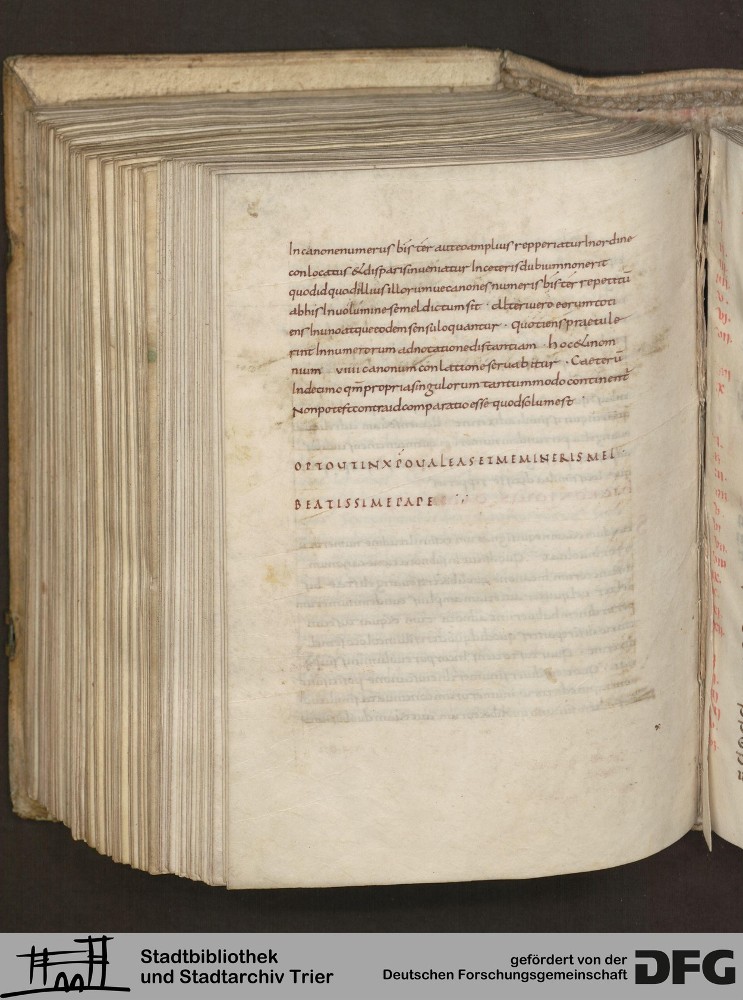 In canone numerus bis ter aut eo amplius repperiatur In ordine
conlocatus & disparis inveniatur In ceteris dubium non erit
quod id quod illius illorumve canones numeris bis ter repetitū
ab his In volumine semel dictum sit · alter vero eorum toti
ens In uno atque eodem sensu loquantur · quotiens praetule
rint In numerorum adnotatione distantiam · hoc & In om
nium viiii canonum conlatione servabitur · Caeterū
In decimo qm̄ propria singulorum tantummodo continent̄
Non potest contra id comparatio esse quod solum est
OPTO UT IN XPO VALEAS ET MEMINERIS MEI ·
BEATISSIME PAPE
Stadtbibliothek
und Stadtarchiv Trier
gefördert von der
Deutschen Forschungsgemeinschaft
DFG